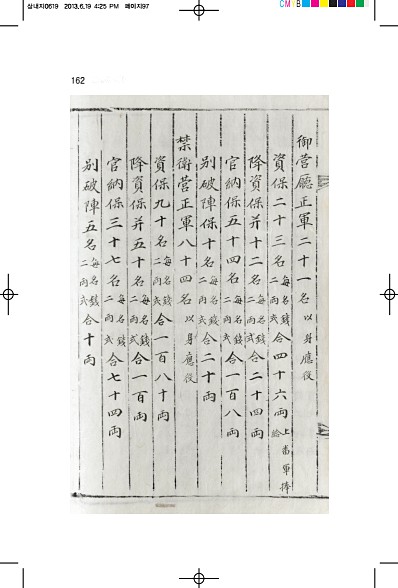 삼내지0619 2013.6.19 4:25 PM 페이지97
162
御营廳正軍二十一名以身應役
資保二十三名每名錢二両式合四十六両上番軍捧給
降資保并十二名每名錢二両式合二十四両
官納保五十四名每名錢二両式合一百八両
别破陣保十名每名錢二両式合二十両
禁衛营正軍八十四名以身應役
資保九十名每名錢二両式合一百八十両
降資保并五十名每名錢二両式合一百両
官納保三十七名每名錢二両式合七十四両
别破陣五名每名錢二両式合十両